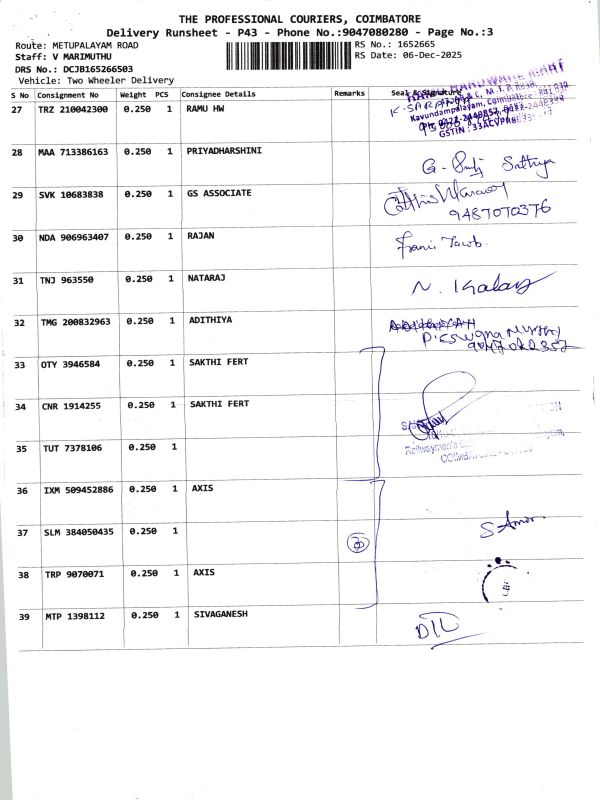 THE PROFESSIONAL COURIERS, COIMBATORE
Delivery Runsheet - P43 - Phone No.:9047080280 - Page No.:3
Route: METUPALAYAM ROAD RS No.: 1652665
Staff: V MARIMUTHU RS Date: 06-Dec-2025
DRS No.: DCJB165266503
Vehicle: Two Wheeler Delivery
S No Consignment No Weight PCS Consignee Details Remarks Seal & Signature
27 TRZ 210042300 0.250 1 RAMU HW
K. SARAN
Kavundampalayam, Coimbatore
28 MAA 713386163 0.250 1 PRIYADHARSHINI
29 SVK 10683838 0.250 1 GS ASSOCIATE
9487070376
30 NDA 906963407 0.250 1 RAJAN
31 TNJ 963550 0.250 1 NATARAJ
32 TMG 200832963 0.250 1 ADITHIYA
33 OTY 3946584 0.250 1 SAKTHI FERT
34 CNR 1914255 0.250 1 SAKTHI FERT
35 TUT 7378106 0.250 1
36 IXM 509452886 0.250 1 AXIS
37 SLM 384050435 0.250 1
38 TRP 9070071 0.250 1 AXIS
39 MTP 1398112 0.250 1 SIVAGANESH